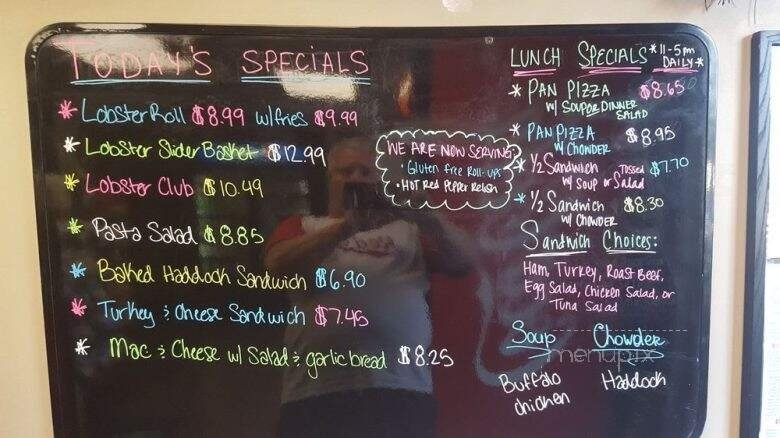 TODAY'S SPECIALS
* Lobster Roll $8.99 w/fries $9.99
* Lobster Slider Basket $12.99
* Lobster Club $10.49
* Pasta Salad $8.85
* Baked Haddock Sandwich $6.90
* Turkey & Cheese Sandwich $7.45
* Mac & Cheese w/ Salad & garlic bread $8.25
WE ARE NOW SERVING
• Gluten free Roll-ups
• HOT RED PEPPER RELISH
LUNCH SPECIALS *11-5pm
DAILY*
* PAN PIZZA $8.65
W/ SOUP OR DINNER
SALAD
* PAN PIZZA $8.95
W/ CHOWDER
* 1/2 Sandwich Tossed $7.70
W/ SOUP or Salad
* 1/2 Sandwich $8.30
W/ CHOWDER
Sandwich Choices:
Ham, Turkey, Roast Beef,
Egg Salad, Chicken Salad, or
Tuna Salad
Soup Chowder
menupix
Buffalo Haddock
chicken